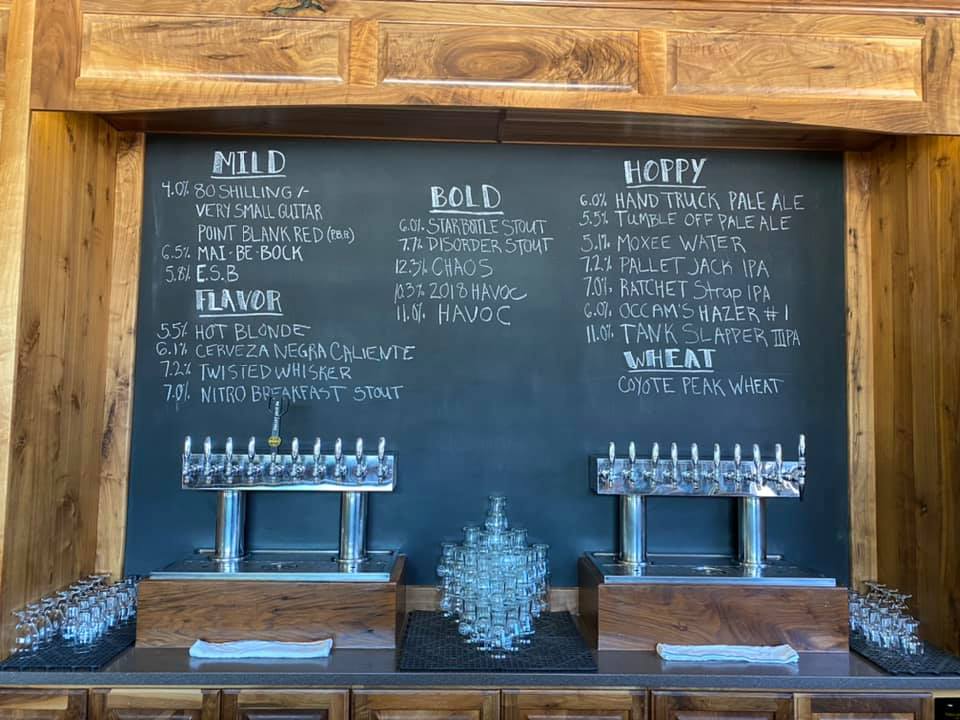 MILD
4.0% 80 SHILLING /-
VERY SMALL GUITAR
POINT BLANK RED (P.B.R)
6.5% MAI-BE-BOCK
5.8% E.S.B
FLAVOR
5.5% HOT BLONDE
6.1% CERVEZA NEGRA CALIENTE
7.2% TWISTED WHISKER
7.0% NITRO BREAKFAST STOUT
BOLD
6.0% STARBOTTLE STOUT
7.7% DISORDER STOUT
12.3% CHAOS
10.3% 2018 HAVOC
11.0% HAVOC
HOPPY
6.0% HAND TRUCK PALE ALE
5.5% TUMBLE OFF PALE ALE
5.1% MOXEE WATER
7.2% PALLET JACK IPA
7.0% RATCHET Strap IPA
6.0% OCCAM'S HAZER #1
11.0% TANK SLAPPER IIIPA
WHEAT
COYOTE PEAK WHEAT